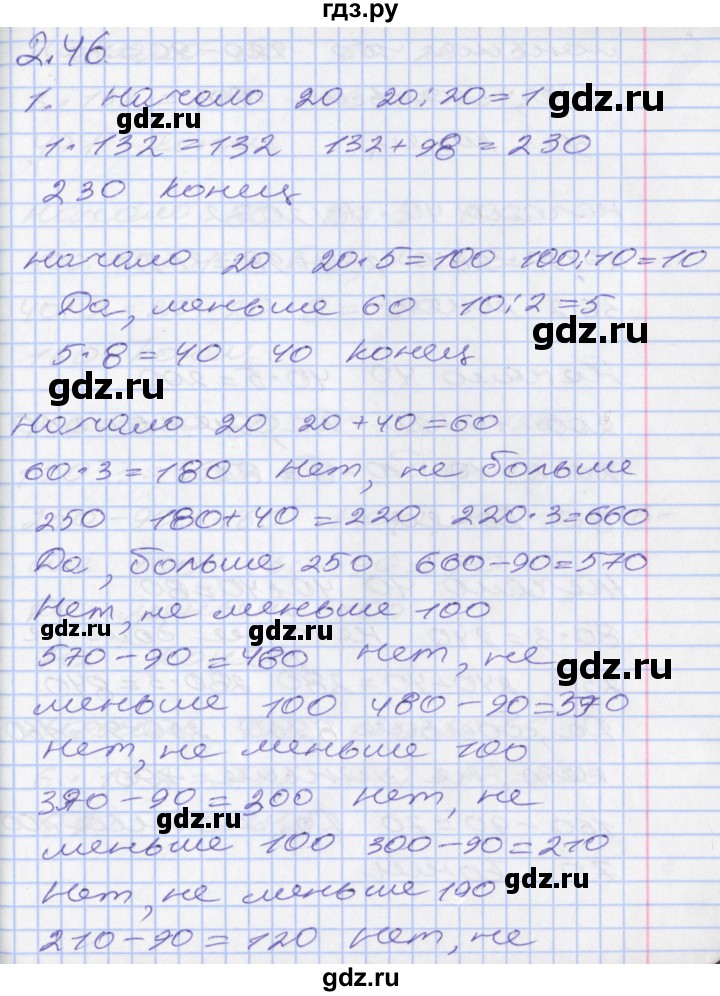 гдз.ру
2.46
1. Начало 20 20:20=1
gdz.ru
gdz.ru
1·132=132 132+98=230
230 Конец
Начало 20 20·5=100 100:10=10
Да, меньше 60 10:2=5
gdz.ru
5·8=40 40 Конец
gdz.ru
Начало 20 20+40=60
60·3=180 Нет, не больше
250 180+40=220 220·3=660
Да, больше 250 660-90=570
Нет, не меньше 100
gdz.ru
gdz.ru
570-90=480 Нет, не
gdz.ru
меньше 100 480-90=390
Нет, не меньше 100
390-90=300 Нет, не
gdz.ru
меньше 100 300-90=210
Нет, не меньше 100
gdz.ru
210-90=120 Нет, не
gdz.ru